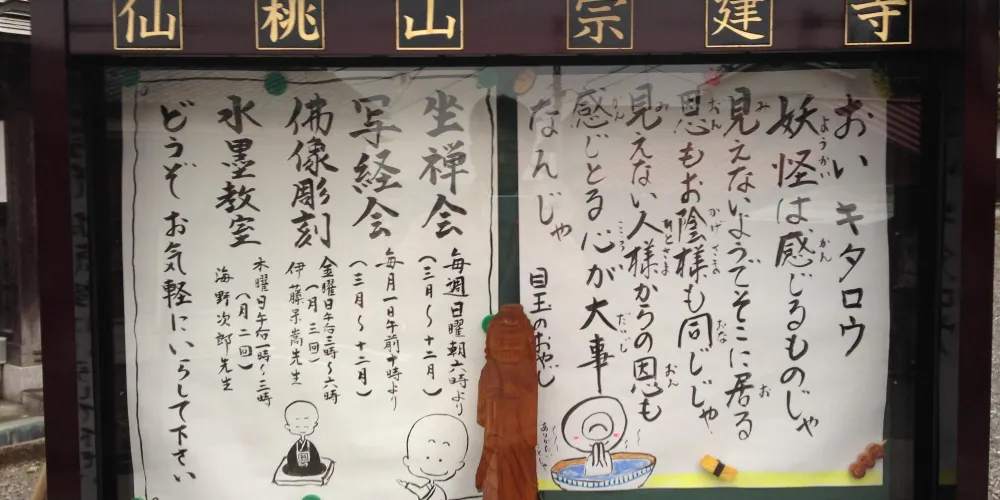 仙桃山宗建寺
おい キタロウ
妖怪は感じるものじゃ
見えないようでそこに居る
恩もお陰様も同じじゃ
見えない人様からの恩も
感じとる心が大事
なんじゃ
目玉のおやじ
坐禅会 毎週日曜朝六時より
(三月〜十二月)
写経会 毎月一日午前十時より
(三月〜十二月)
佛像彫刻 金曜日午后三時〜六時
(月三回)
先生
水墨教室 木曜日午后一時〜三時
(月二回)
海野次郎先生
どうぞ お気軽にいらして下さい